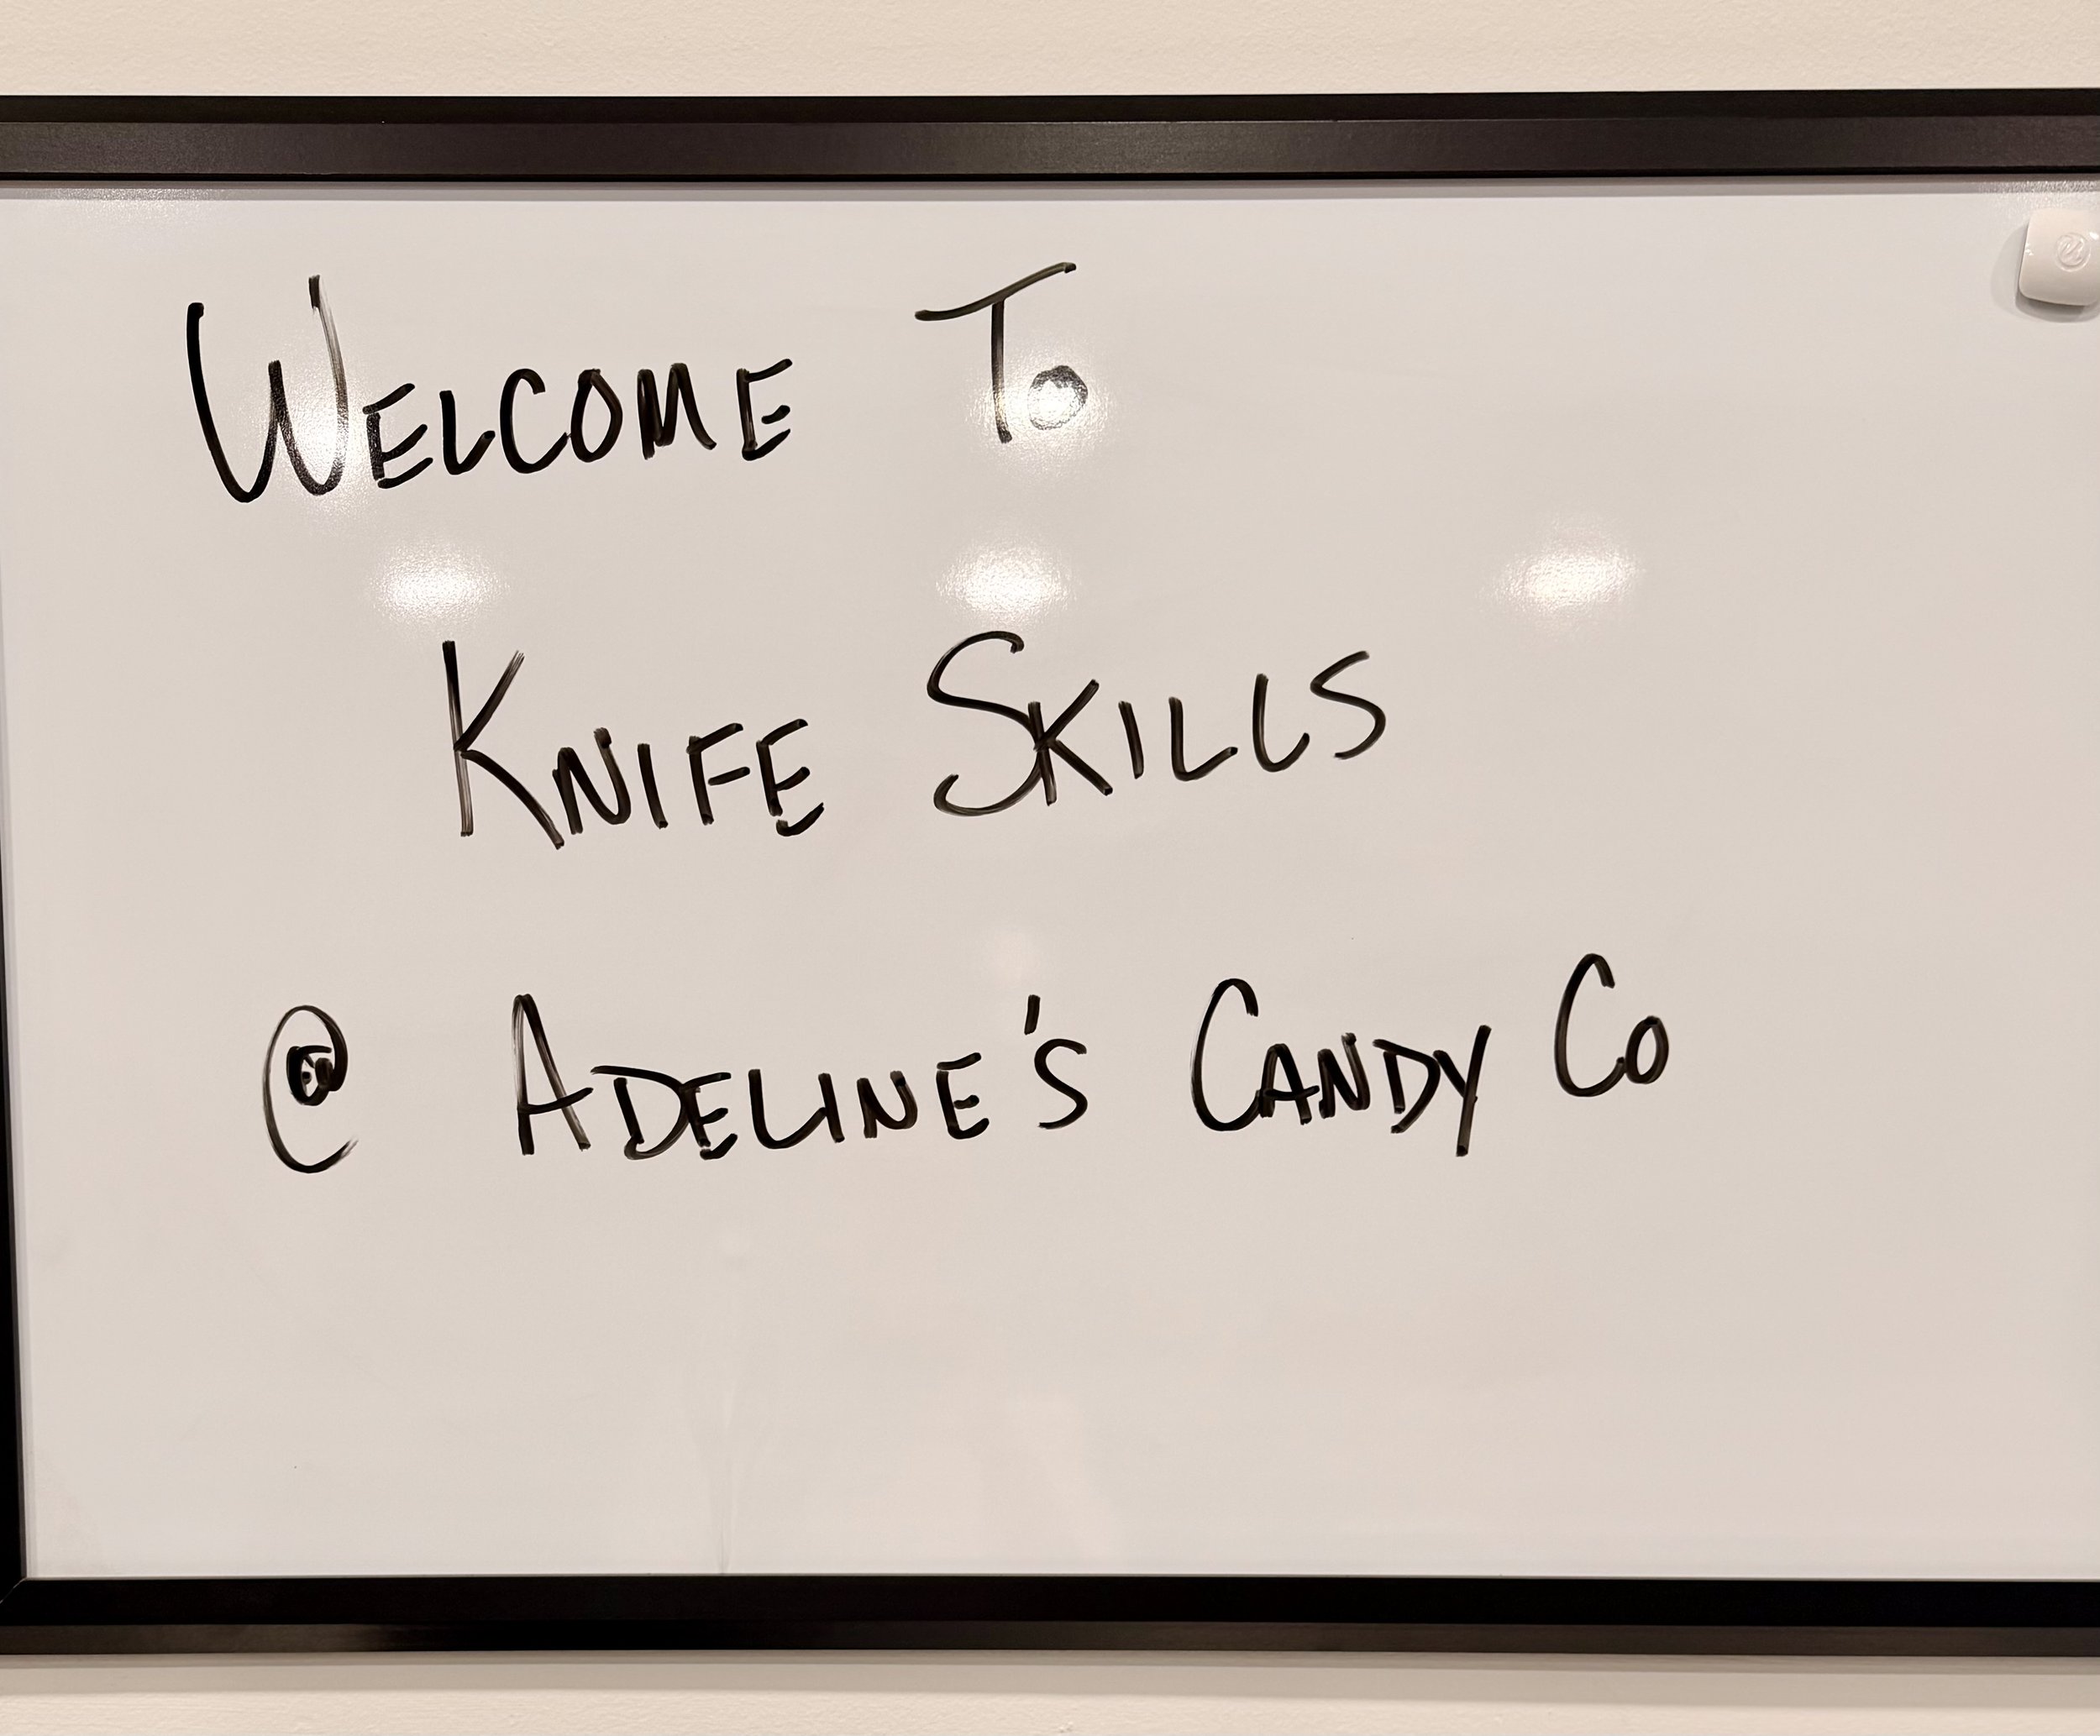 WELCOME TO
KNIFE SKILLS
@ ADELINE'S CANDY CO